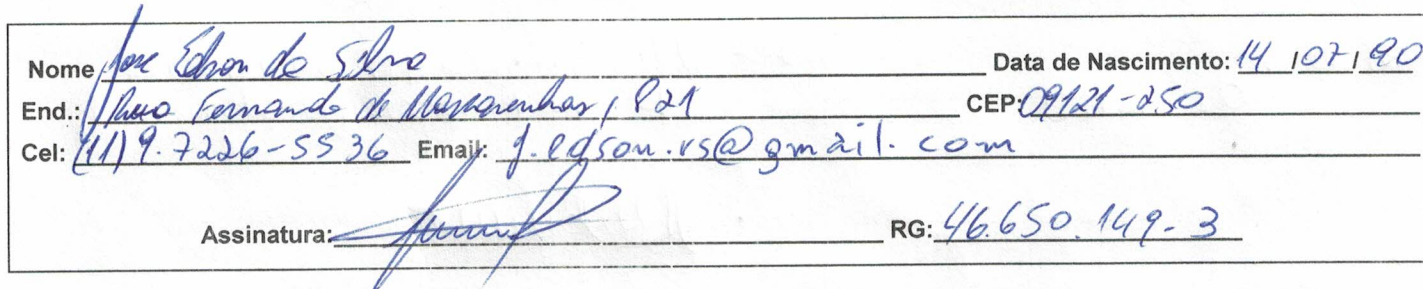 Nome Jose Edson da Silva Data de Nascimento: 14 / 07 / 90
End.: Rua Fernando de Mascarenhas, 821 CEP: 09121-250
Cel: (11) 9.7226-5536 Email: j.edson.vs@gmail.com
Assinatura: RG: 46.650.149-3